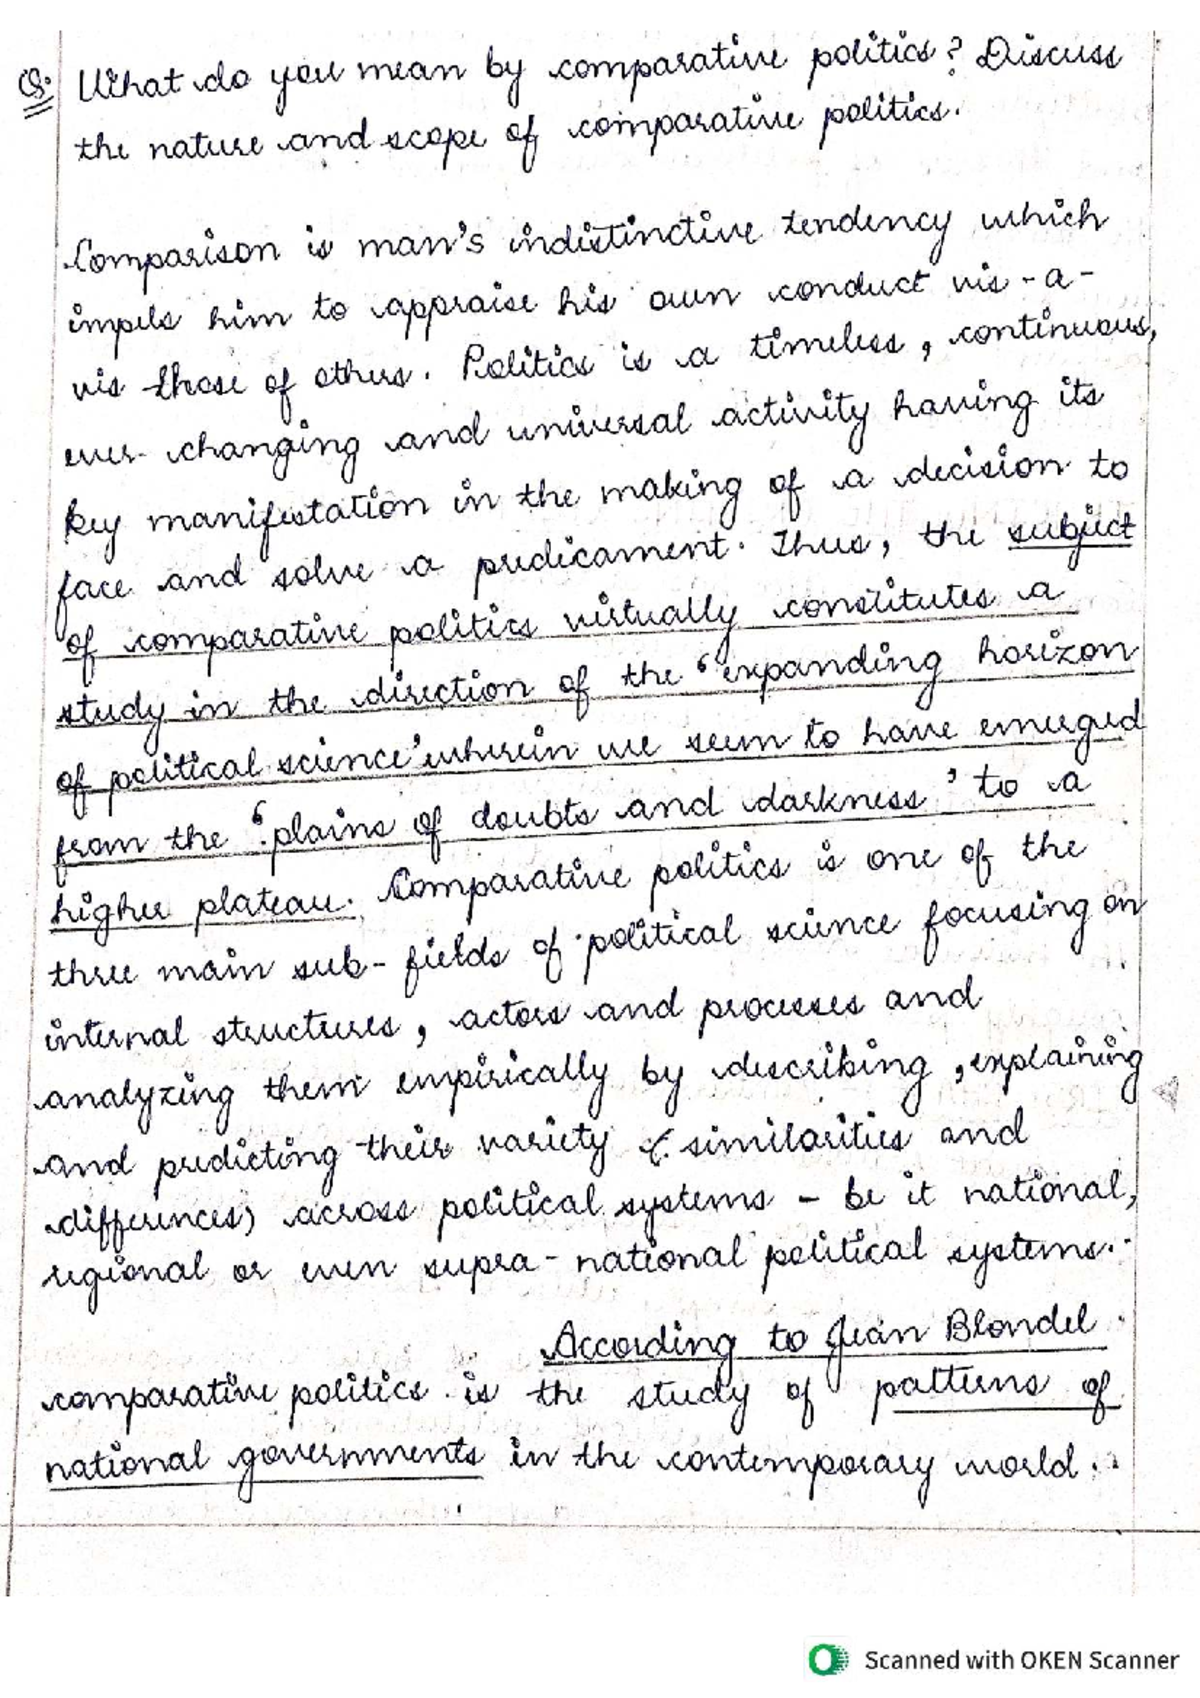 Q: What do you mean by comparative politics? Discuss
the nature and scope of comparative politics.
Comparison is man's indistinctive tendency which
impels him to appraise his own conduct vis-a-
vis those of others. Politics is a timeless, continuous,
ever-changing and universal activity having its
key manifestation in the making of a decision to
face and solve a predicament. Thus, the subject
of comparative politics virtually constitutes a
study in the direction of the 'expanding horizon
of political science' wherein we seem to have emerged
from the 'plains of doubts and darkness' to a
higher plateau. Comparative politics is one of the
three main sub-fields of political science focusing on
internal structures, actors and processes and
analyzing them empirically by describing, explaining
and predicting their variety (similarities and
differences) across political systems - be it national,
regional or even supra-national political systems.
According to Jean Blondel
comparative politics is the study of patterns of
national governments in the contemporary world.
Scanned with OKEN Scanner